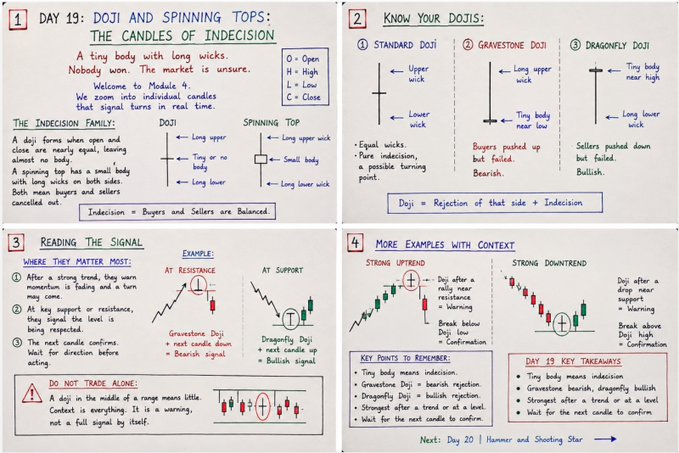 1
DAY 19: DOJI AND SPINNING TOPS:
THE CANDLES OF INDECISION
A tiny body with long wicks.
Nobody won. The market is unsure.
Welcome to Module 4.
We zoom into individual candles
that signal turns in real time.
O = Open
H = High
L = Low
C = Close
THE INDECISION FAMILY:
A doji forms when open and
close are nearly equal, leaving
almost no body.
A spinning top has a small body
with long wicks on both sides.
Both mean buyers and sellers
cancelled out.
DOJI
Long upper
Tiny or no
body
Long lower
SPINNING TOP
Long upper wick
Small body
Long lower wick
Indecision = Buyers and Sellers are Balanced.
2
KNOW YOUR DOJIS:
1 STANDARD DOJI
Upper
wick
Lower
wick
• Equal wicks.
• Pure indecision,
a possible turning
point.
2 GRAVESTONE DOJI
Long upper
wick
Tiny body
near low
Buyers pushed up
but failed.
Bearish.
3 DRAGONFLY DOJI
Tiny body
near high
Long lower
wick
Sellers pushed down
but failed.
Bullish.
Doji = Rejection of that side + Indecision
3
READING THE SIGNAL
WHERE THEY MATTER MOST:
1 After a strong trend, they warn
momentum is fading and a turn
may come.
2 At key support or resistance,
they signal the level is
being respected.
3 The next candle confirms.
Wait for direction before
acting.
EXAMPLE:
AT RESISTANCE
Gravestone Doji
+ next candle down
= Bearish signal
AT SUPPORT
Dragonfly Doji
+ next candle up
= Bullish signal
DO NOT TRADE ALONE:
A doji in the middle of a range means little.
Context is everything. It is a warning,
not a full signal by itself.
4
MORE EXAMPLES WITH CONTEXT
STRONG UPTREND
Doji after a
rally near
resistance
= Warning
Break below
Doji low
= Confirmation
STRONG DOWNTREND
Doji after a
drop near
support
= Warning
Break above
Doji high
= Confirmation
KEY POINTS TO REMEMBER:
• Tiny body means indecision.
• Gravestone Doji = bearish rejection.
• Dragonfly Doji = bullish rejection.
• Strongest after a trend or at a level.
• Wait for the next candle to confirm.
DAY 19 KEY TAKEAWAYS
• Tiny body means indecision
• Gravestone bearish, dragonfly bullish
• Strongest after a trend or at a level
• Wait for the next candle to confirm
Next: Day 20 | Hammer and Shooting Star